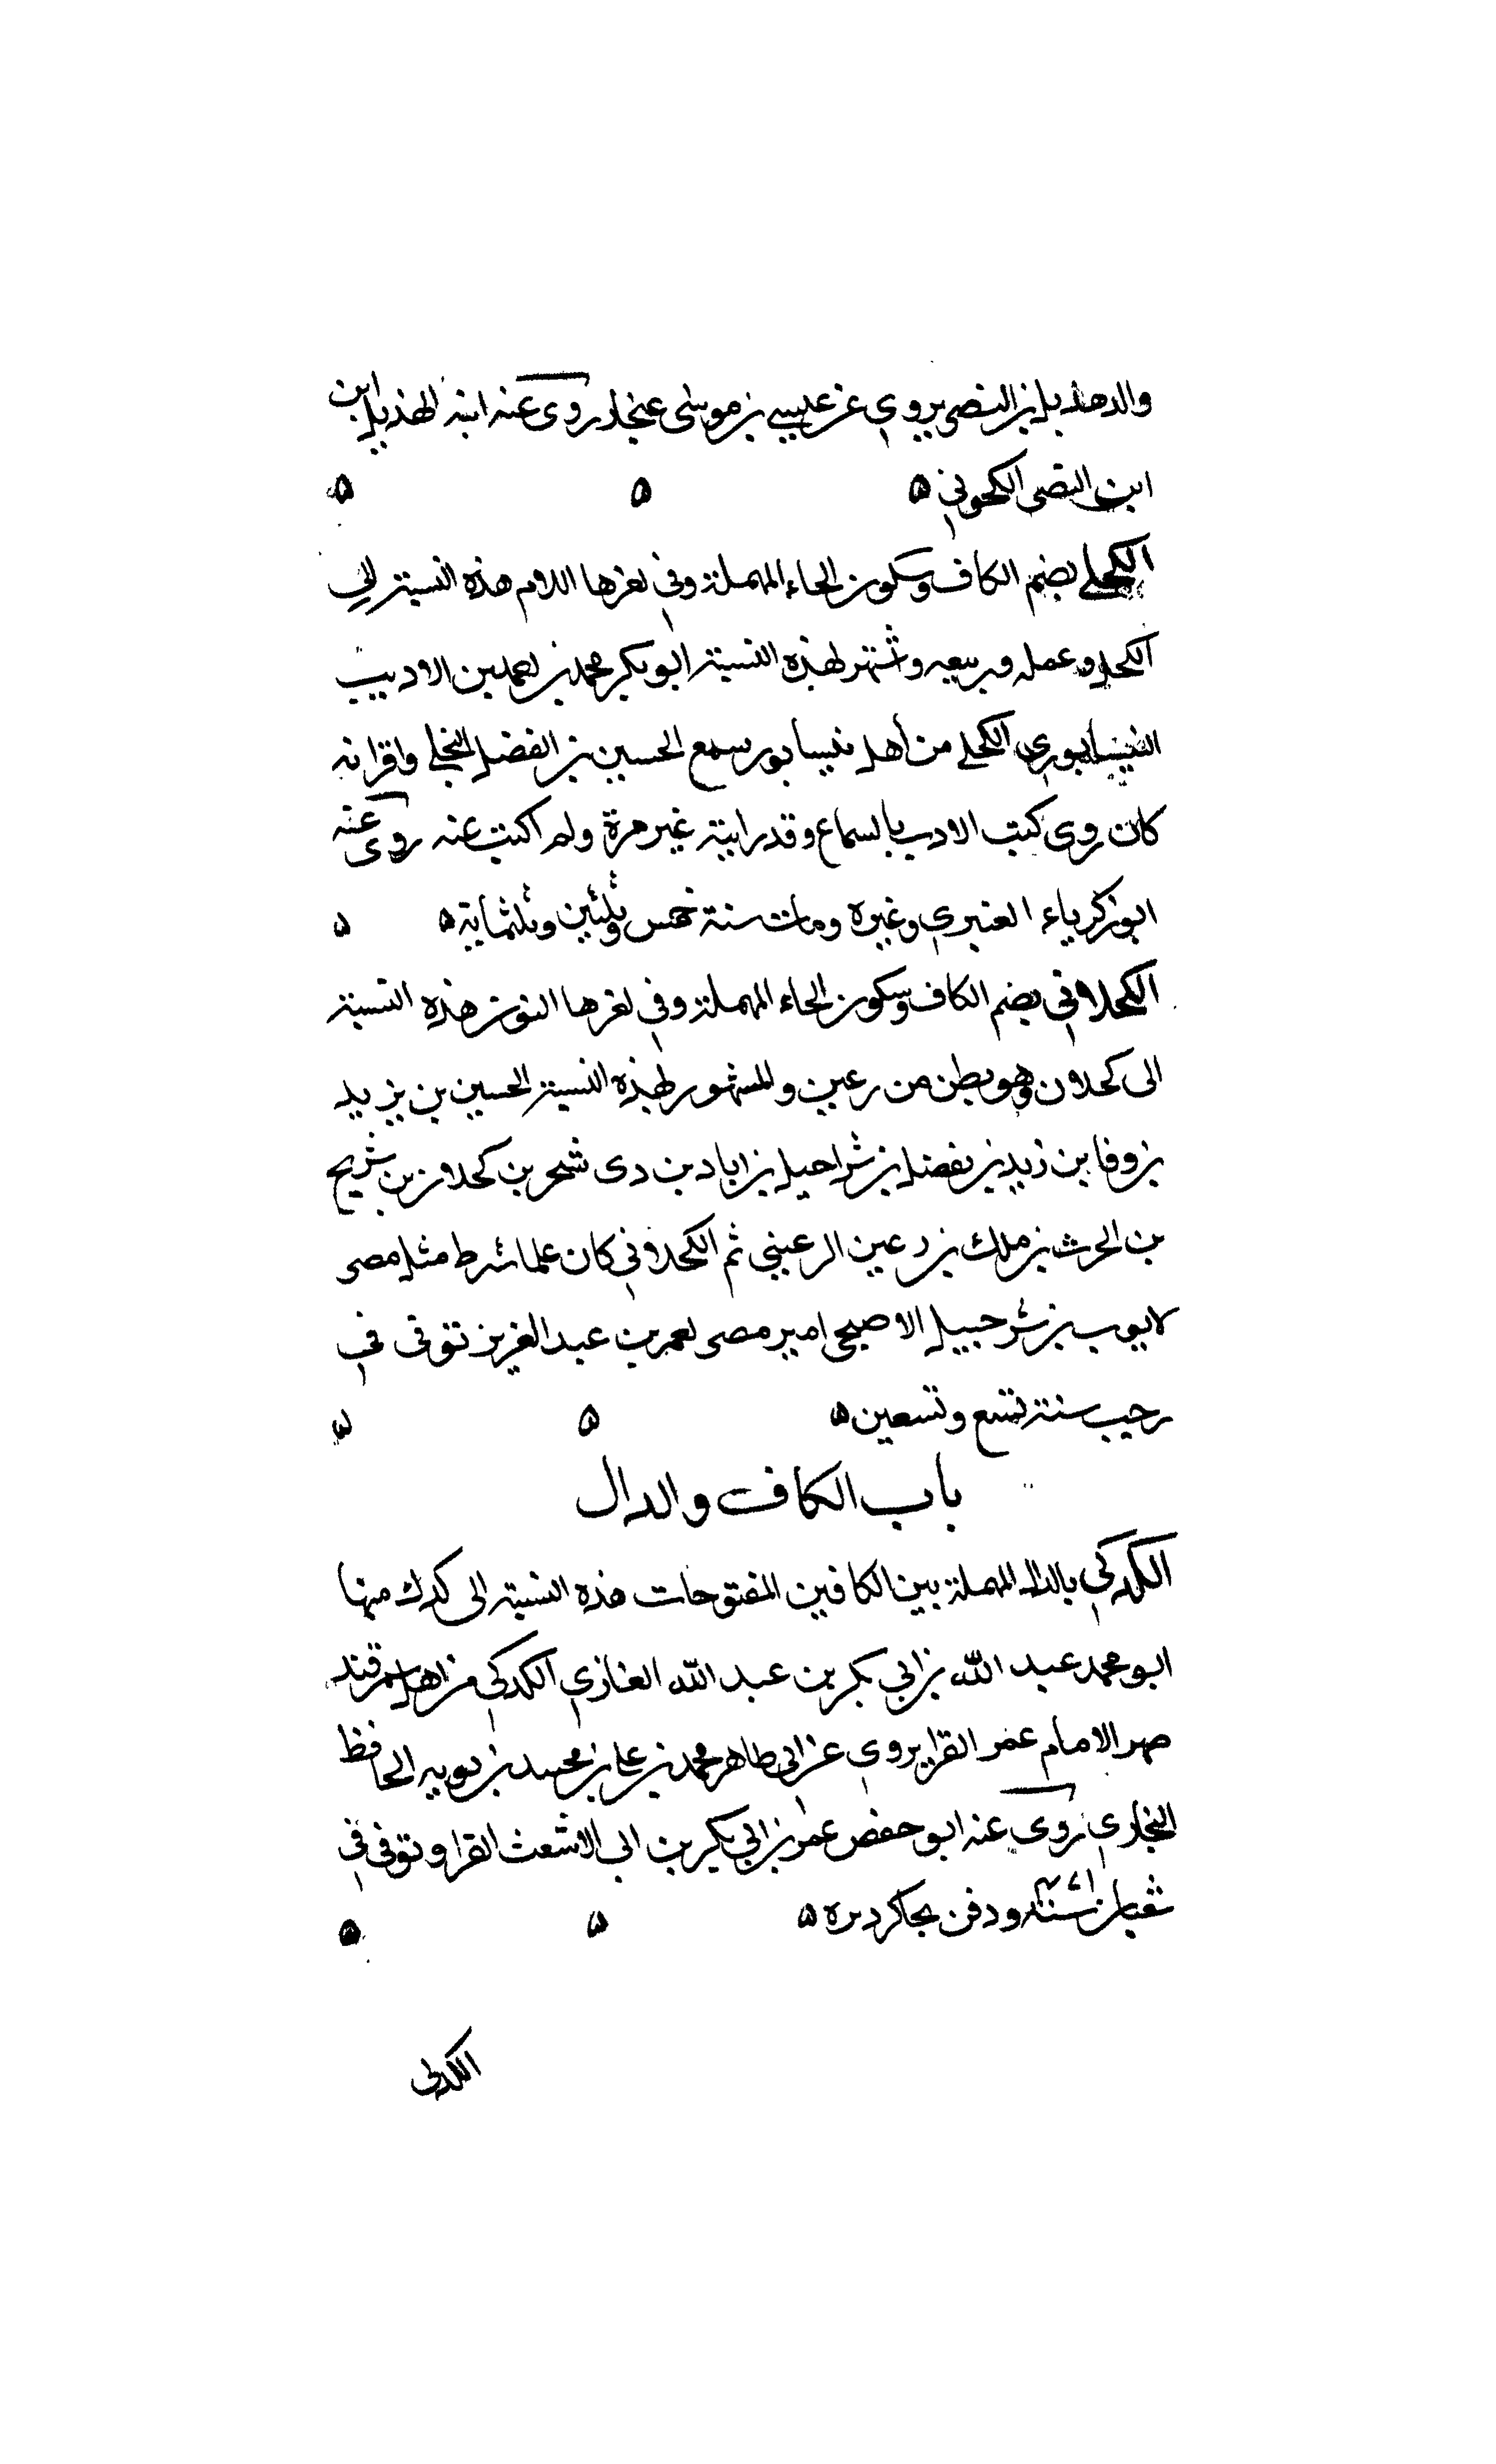 والد هذيل بن النضر يروي عن عيسى بن موسى غنجار روى عنه ابنه الهذيل ابن
ابن النضر الكحوني ه ه ه
الكحلي بضم الكاف وسكون الحاء المهملة وفي اخرها اللام هذه النسبة الى
الكحل وعمله وبيعه واشتهر بهذه النسبة ابو بكر محمد بن احمد بن الاديب
النيسابوري الكحلي من اهل نيسابور سمع الحسين بن الفضل البجلي واقرانه
كان روى كتب الادب بالسماع وقد رايته غير مرة ولم اكتب عنه روى عنه
ابو زكرياء العنبري وغيره ومات سنة خمس وثلثين وثلثماية ه ه
الكحلاني بضم الكاف وسكون الحاء المهملة وفي اخرها النون هذه النسبة
الى كحلان وهو بطن من رعين والمشهور بهذه النسبة الحسين بن يزيد
بن وفا بن زيد بن بفضل بن شراحيل بن اياد بن دى شحر بن كحلان بن شريح
بن الحرث بن ملك بن رعين الرعيني ثم الكحلاني كان على شرط مصر
لايوب بن شرحبيل الاصبحي امير مصر لعمر بن عبد العزيز توفى في
رجب سنة تسع وتسعين ه ه ه
باب الكاف والدال
الكدكي بالدال المهملة بين الكافين المفتوحات هذه النسبة الى كدك منها
ابو محمد عبد الله بن ابي بكر بن عبد الله الغازي الكدكي من اهل سمرقند
صهر الامام عمر القرا يروي عن ابي طاهر محمد بن علي بن محمد بن بويه الحافظ
البخاري روى عنه ابو حفص عمر بن ابي بكر بن ابي الاشعث القرا وتوفى في
شعبان سنة ودفن بجاكرديزه ه ه ه
الكدلى